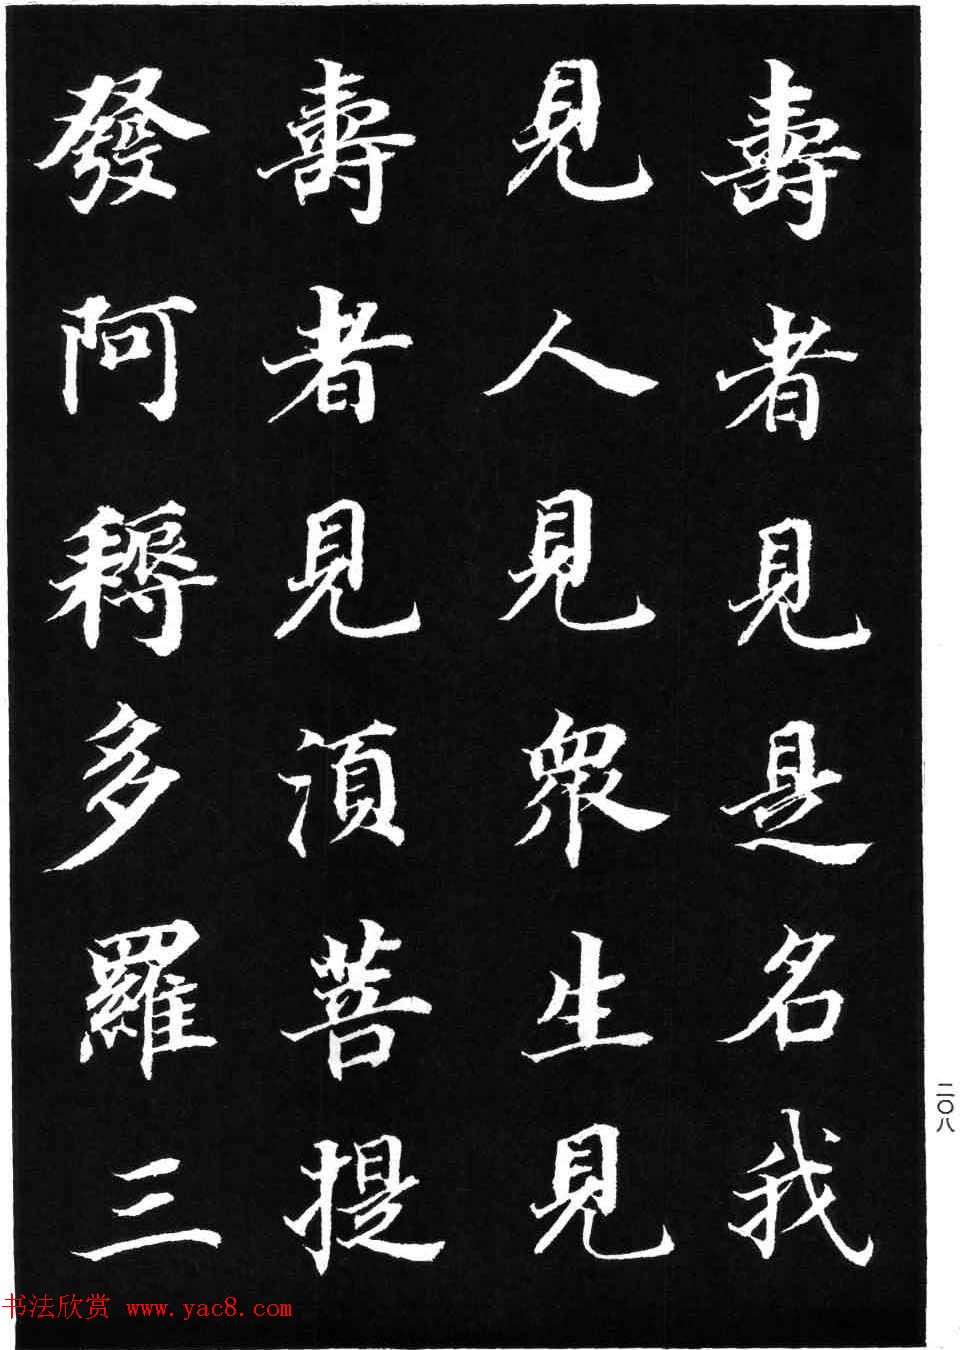 壽者見是名我
見人見衆生見
壽者見須菩提
發阿耨多羅三
二〇八
书法欣赏 www.yac8.com